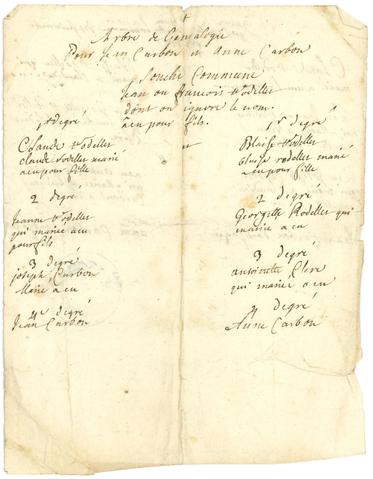 Arbre de Genealogie
Pour Jean Carbon et Anne Carbon
Souche Commune
Jean ou françois Rodelles
dont on ignore le nom.
a eu pour fils.
1r degré
Claude Rodelles
claude rodelles marié
a eu pour fille
2 degré
Jeanne Rodelles
qui mariée a eu
pour fils
3 degré
joseph Carbon
Marié a eu
4e degré
Jean Carbon
1r degré
Blaise Rodelles
blaise rodelles marié
a eu pour fille
2 degré
Georgette Rodelles qui
mariée a eu
3 degré
antoinette Clere
qui mariée a eu
4 degré
Anne Carbon